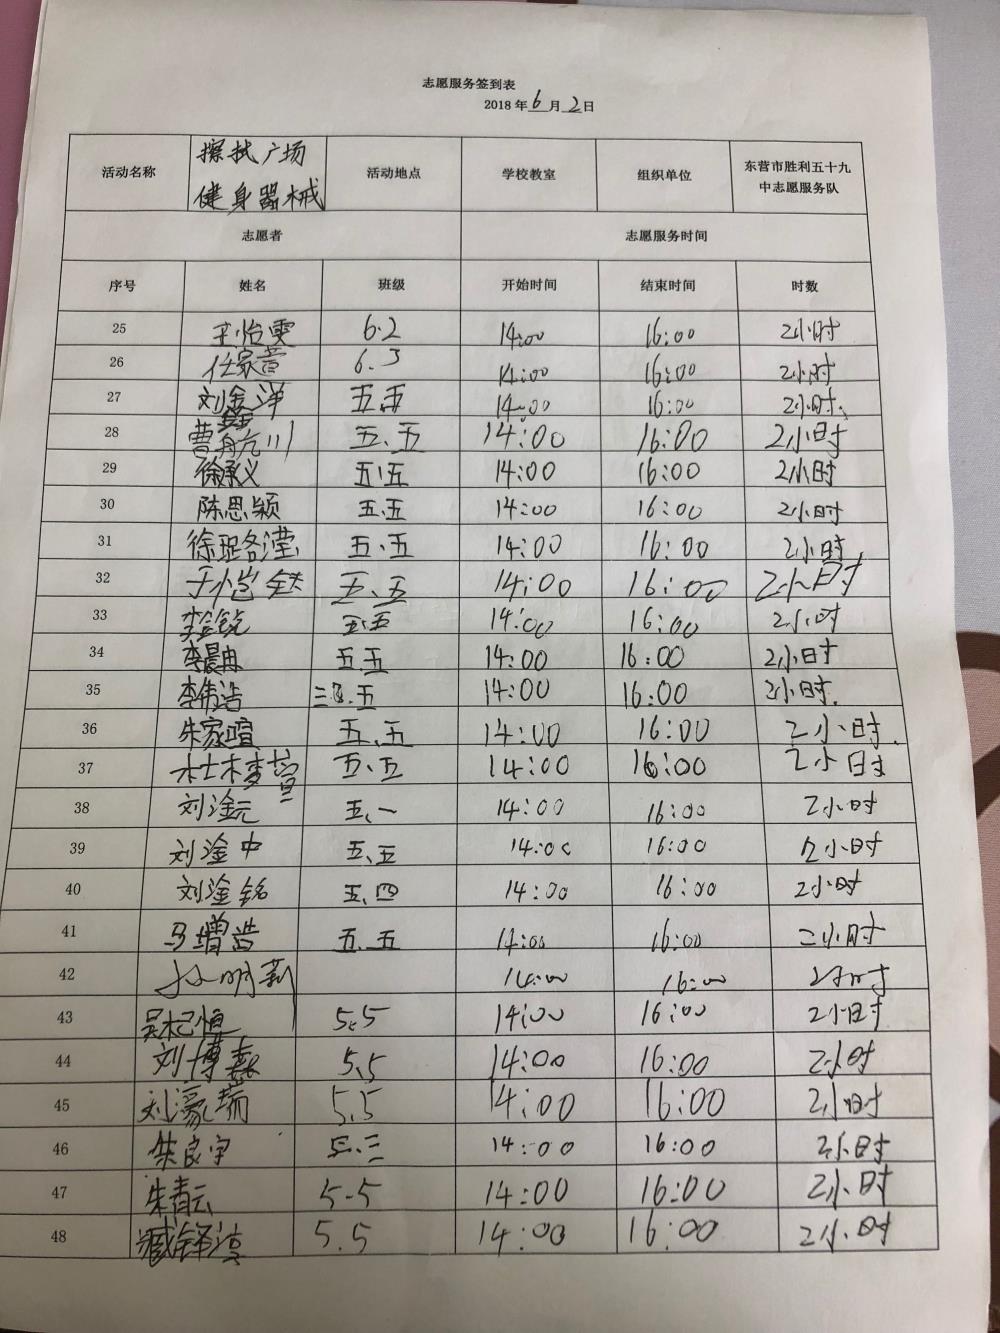 志愿服务签到表
2018 年 6 月 2 日
活动名称 擦拭广场健身器械 活动地点 学校教室 组织单位 东营市胜利五十九中志愿服务队
志愿者 志愿服务时间
序号 姓名 班级 开始时间 结束时间 时数
25 王怡雯 6.2 14:00 16:00 2小时
26 任家萱 6.3 14:00 16:00 2小时
27 刘金洋 五.五 14:00 16:00 2小时.
28 曹 五.五 14:00 16:00 2小时
29 徐承义 五.五 14:00 16:00 2小时
30 陈思颖 五.五 14:00 16:00 2小时
31 徐珺滢 五.五 14:00 16:00 2小时
32 于 五.五 14:00 16:00 2小时
33 李金锐 五.五 14:00 16:00 2小时
34 李晨冉 五.五 14:00 16:00 2小时
35 李伟浩 五 14:00 16:00 2小时.
36 朱家暄 五.五 14:00 16:00 2小时.
37 五.五 14:00 16:00 2小时
38 刘淦元 五.一 14:00 16:00 2小时
39 刘淦中 五.五 14:00 16:00 2小时
40 刘淦铭 五.四 14:00 16:00 2小时
41 马增浩 五.五 14:00 16:00 二小时
42 14:00 16:00 2小时
43 吴杞恒 5.5 14:00 16:00 2小时
44 刘博森 5.5 14:00 16:00 2小时
45 刘濠瑞 5.5 14:00 16:00 2小时
46 朱良宇 五.三 14:00 16:00 2小时
47 朱青云 5.5 14:00 16:00 2小时
48 臧铎 5.5 14:00 16:00 2小时